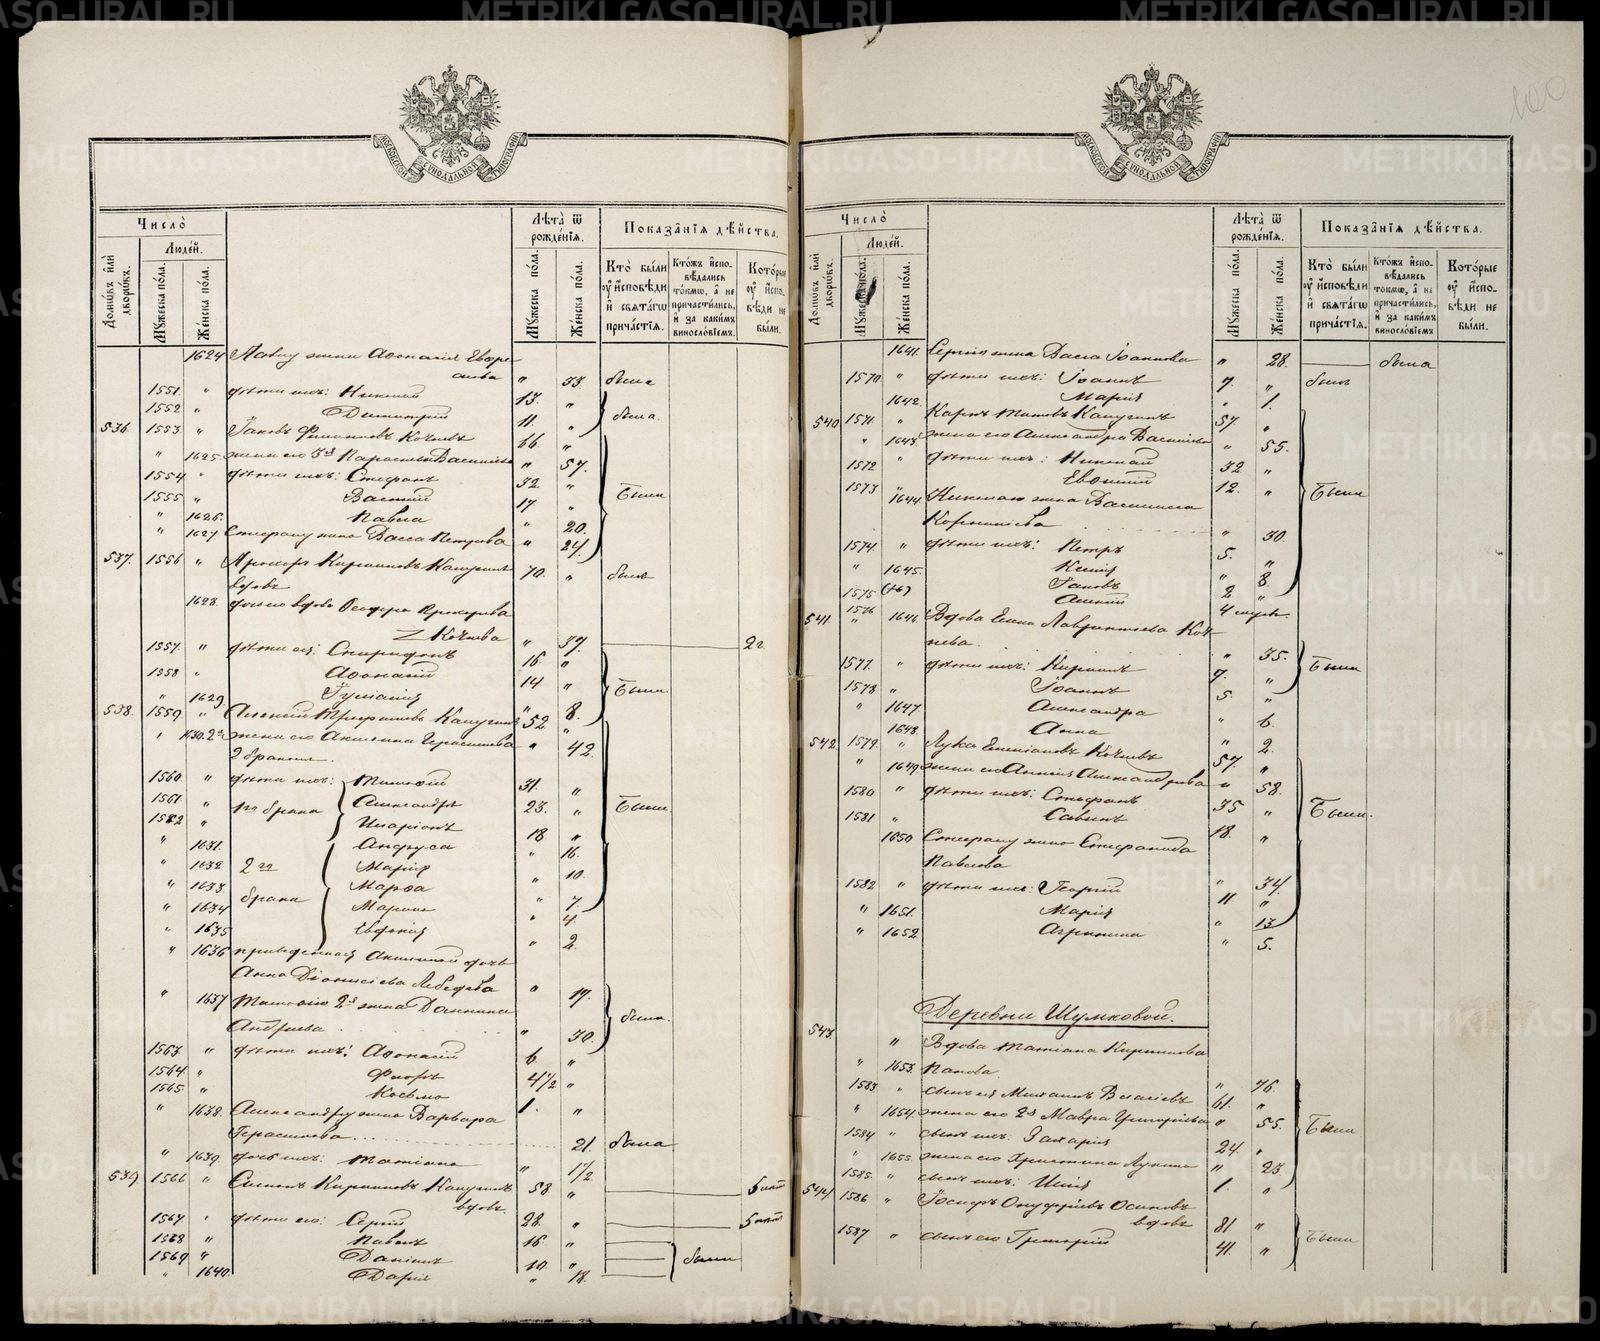 METRIKI.GASO-URAL.RU
МОСКОВСКОЙ СУНОДАЛЬНОЙ ТИПОГРАФІИ
Число̀
Домѡ́въ и҆лѝ дворѡ́въ.
Люде́й.
Мꙋ́жеска по́ла.
Же́нска по́ла.
Лѣ́та ѿ рожде́нїѧ.
Мꙋ́жеска по́ла.
Же́нска по́ла.
Показа̑нїѧ дѣ́йства.
Кто̀ бы́ли ᲂу҆ и҆сповѣ́ди и҆ свѧта́гѡ причáстїѧ.
Кто́жъ и҆спо-
вѣ́дались
то́кмѡ, а҆ не
причасти́лись,
и҆ за каки́мъ
виносло́вїемъ.
Кото́рые ᲂу҆ и҆спо-
вѣ́ди не бы́ли.
1624 Павлу жена Афонасія Евфре
сиева " 33 была
1551 " дѣти ихъ: Николай 13. "
1552 " Димитрій 11. " были
536. 1553 " Іаковъ Филиповъ Кочневъ 66. "
" 1625 жена его 3я Параскева Василіева " 57.
1554 " дѣти ихъ: Стефанъ 32. "
1555 " Василій 17. " Были
" 1626. Павла " 20.
" 1627 Стефану жена Васса Петрова " 24.
537. 1556 " Прохоръ Кириловъ Капугинъ 70. " былъ
вдовъ
1628. дочь его вдова Феодора Прохорова
Кочнева " 39. 2 г
1557. " дѣти ея: Спиридонъ 16 "
1558 " Афонасій 14 " Были
" 1629 Іулианія " 8.
538. 1559 " Алексій Трифиновъ Капугинъ 52 "
" 1630. жена его Акилина Герасимова " 42.
2 бракомъ.
1560 " дѣти ихъ: Тимофій 31. "
1561 " 1го брака Александръ 23. " Были
1562 " Иларіонъ 18 "
" 1631. Анфуса " 16.
" 1632 2го Марія " 10.
" 1633 брака Марфа " 7.
" 1634 Марина " 4.
" 1635 Евдокія " 2.
" 1636 приведенная Акилиной дочь
Анна Діонисіева Лебедева " 17.
" 1637 Тимофію 2я жена Домнина
Андреева " 30. были.
1563 " дѣти ихъ: Афонасій 6. "
1564 " Флоръ 4 1/2 "
1565 " Косьма 1. "
" 1638. Александру жена Варвара
Герасимова 21. была
" 1639. дочь ихъ: Татіана " 1 1/2
539 1566 " Симеонъ Кириловъ Капугинъ 58 " 5 лѣт
вдовъ.
1567 " дѣти его: Сергій 28. " 5 лѣт
1568 " Павелъ 16. "
1569 " Даніилъ 10. " были
" 1640. Дарія " 18.
100
Число̀
Домѡ́въ и҆лѝ дворѡ́въ.
Люде́й.
Мꙋ́жеска по́ла.
Же́нска по́ла.
Лѣ́та ѿ рожде́нїѧ.
Мꙋ́жеска по́ла.
Же́нска по́ла.
Показа̑нїѧ дѣ́йства.
Кто̀ бы́ли ᲂу҆ и҆сповѣ́ди и҆ свѧта́гѡ причáстїѧ.
Кто́жъ и҆спо-
вѣ́дались
то́кмѡ, а҆ не
причасти́лись,
и҆ за каки́мъ
виносло́вїемъ
Кото́рые ᲂу҆ и҆спо-
вѣ́ди не бы́ли.
1641. Сергію жена Васса Іоаннова " 28. была
1570 " дѣти ихъ: Іоаннъ 7. " былъ
1642. Марія " 1.
540 1571 " Карпъ Титовъ Капугинъ 57. "
" 1643. жена его Александра Василіева " 55.
1572 " дѣти ихъ: Николай 32 "
1573 " Евфимій 12. " Были
1644. Николаю жена Василиса
Корнилиева " 30.
1574. " дѣти ихъ: Петръ 5. "
" 1645. Ксенія " 8.
1575 Іаковъ 2 "
1576 Алексій 4 мѣс.
541. " 1646 Вдова Елена Лаврентіева Коч
нева " 35.
1577 " дѣти ихъ: Кирилъ 9. " Были
1578 " Іоаннъ 5 "
" 1647 Александра " 6.
1648. Анна " 2.
542. 1579. " Лука Емиліановъ Кочневъ 57. "
" 1649 жена его Анисія Александрова " 58.
1580 " дѣти ихъ: Стефанъ 35 " Были.
1581 " Савинъ 18. "
1650 Стефану жена Стефанида
Павлова " 34.
1582 " дѣти ихъ: Георгій 11 "
" 1651. Марія " 13
" 1652 Агрипина " 5.
Деревни Шумковой.
543. " Вдова Татіана Кирилова
" 1653. Панова. " 76
1583 " сынъ ея Михаилъ Власіевъ 61. "
" 1654. жена его 2я Мавра Григоріева " 55. Были
1584 " сынъ ихъ: Захарія 24. "
" 1655. жена его Христина Лукина " 23
1585. " сынъ ихъ: Илія 1. "
544 1586 " Іосифъ Онуфріевъ Осиповъ
вдовъ 81 " Были
1587 " сынъ его Григорій 41. "